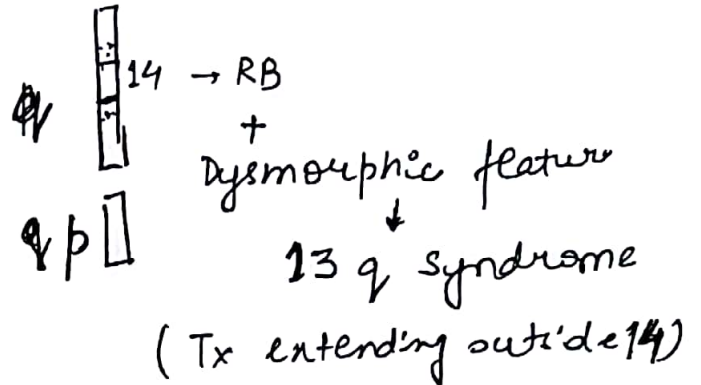 14 → RB
q
+
Dysmorphic feature
↓
q p
13 q syndrome
( Tx extending outside 14)